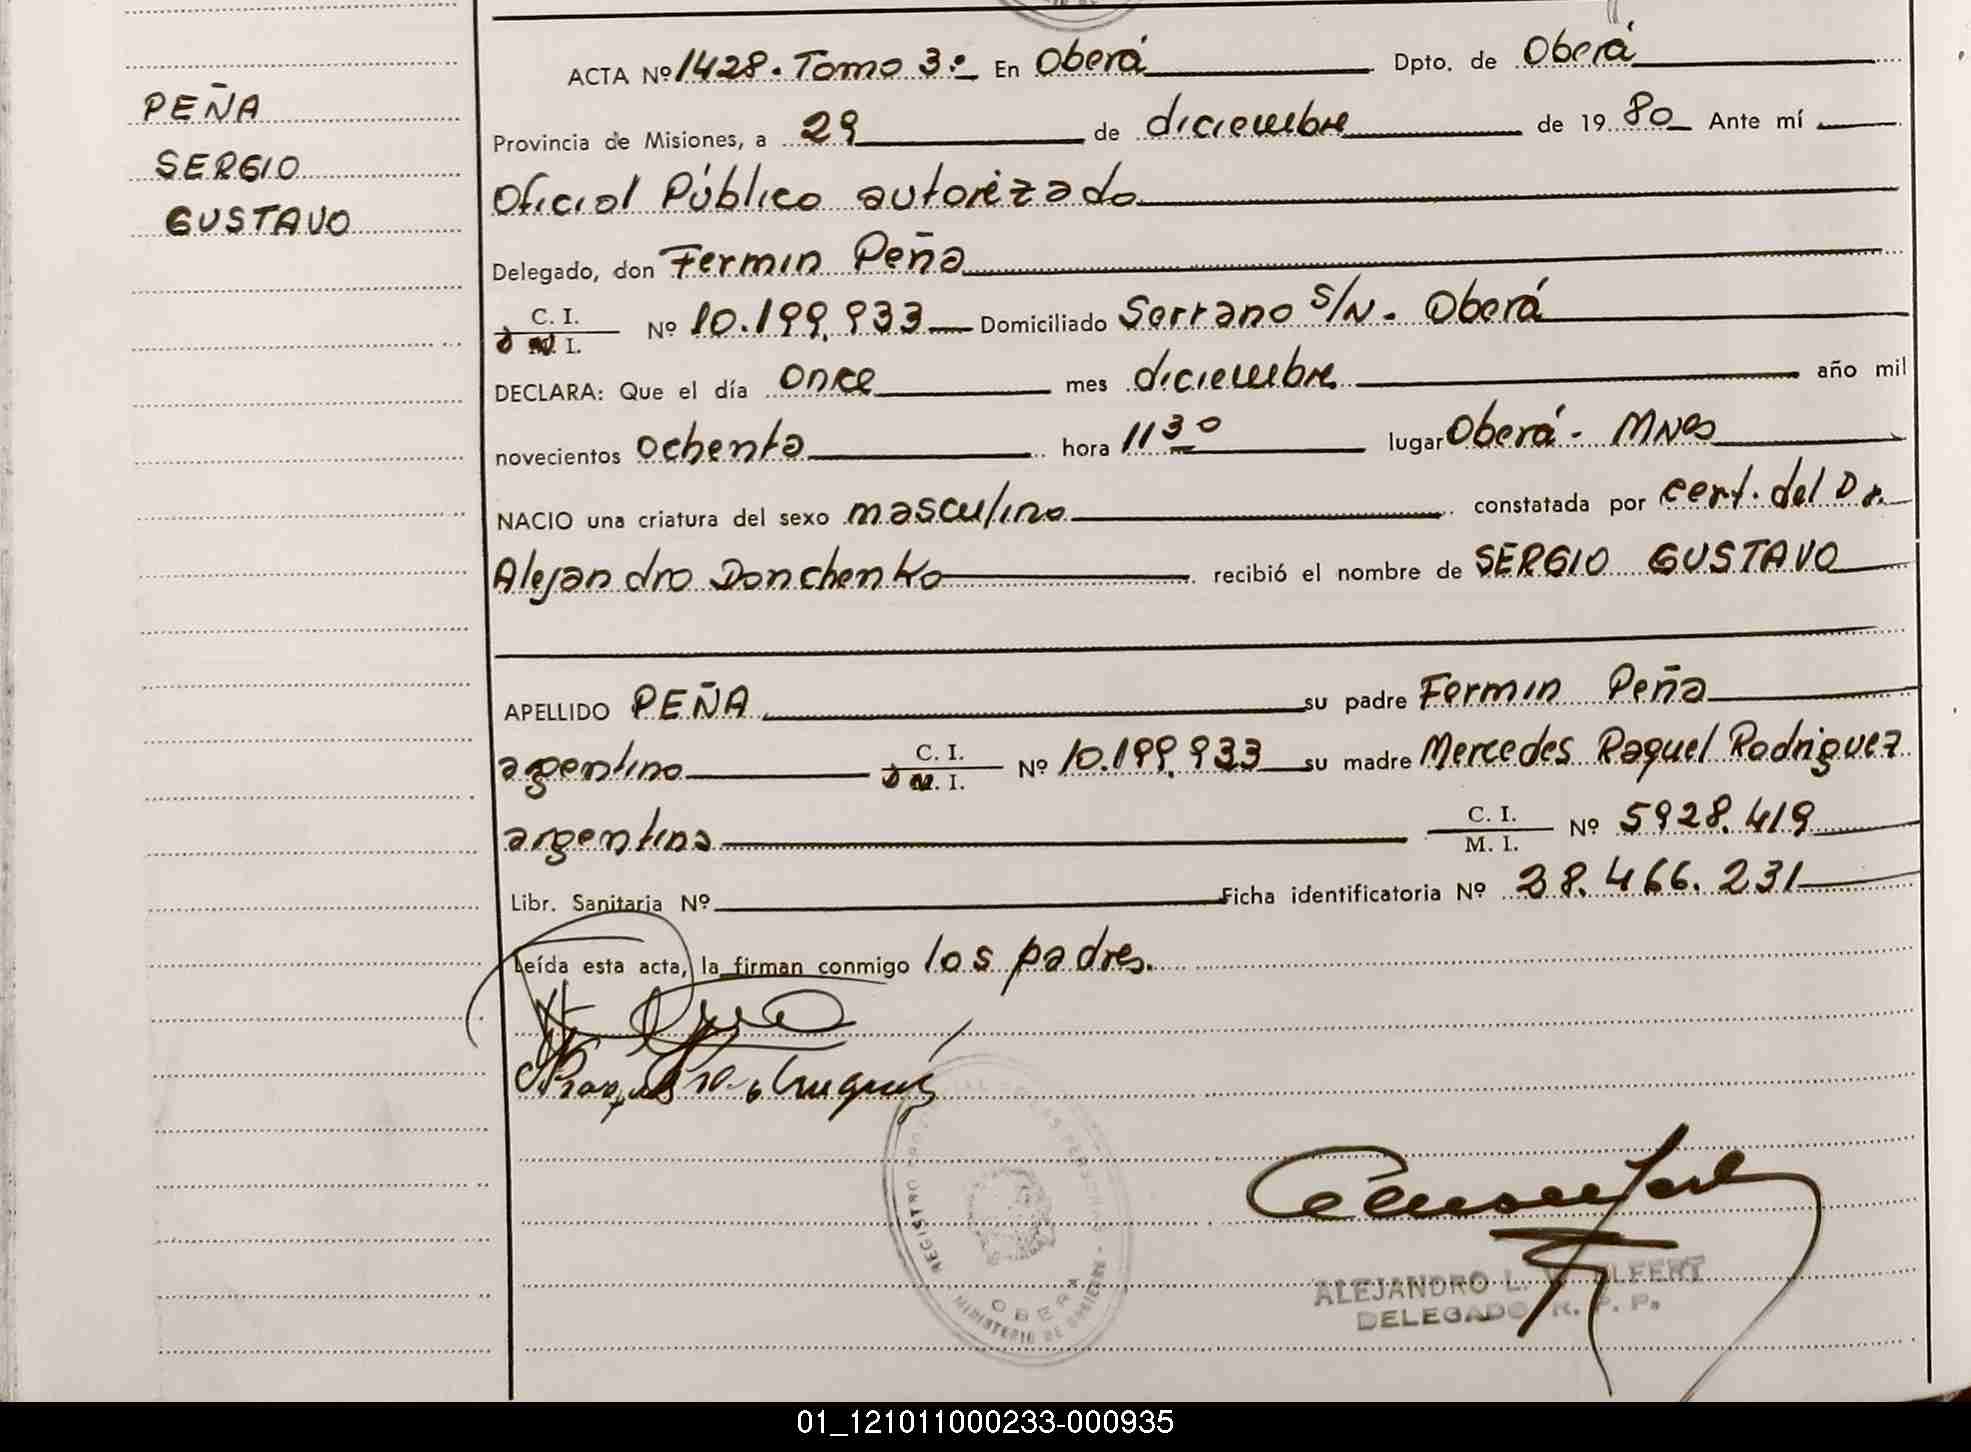 PEÑA
SERGIO
GUSTAVO
ACTA Nº 1428. Tomo 3º En Oberá Dpto. de Oberá
Provincia de Misiones, a 29 de diciembre de 1980 Ante mí
Oficial Público autorizado
Delegado, don Fermin Peña
C. I.
D N I. Nº 10.199.933 Domiciliado Serrano s/N. Oberá
DECLARA: Que el día once mes diciembre año mil
novecientos ochenta hora 11 30 lugar Oberá - Mnes
NACIO una criatura del sexo masculino constatada por cert. del Dr.
Alejandro Donchenko recibió el nombre de SERGIO GUSTAVO
APELLIDO PEÑA su padre Fermin Peña
argentino C. I. D N I. Nº 10.199.933 su madre Mercedes Raquel Rodriguez
argentina C. I. M. I. Nº 5928.419
Libr. Sanitaria Nº Ficha identificatoria Nº 28.466.231
Leída esta acta, la firman conmigo los padres.
REGISTRO PROVINCIAL DE LAS PERSONAS
OBERA
MINISTERIO DE GOBIERNO
ALEJANDRO L.
DELEGADO R. P. P.
01_121011000233-000935